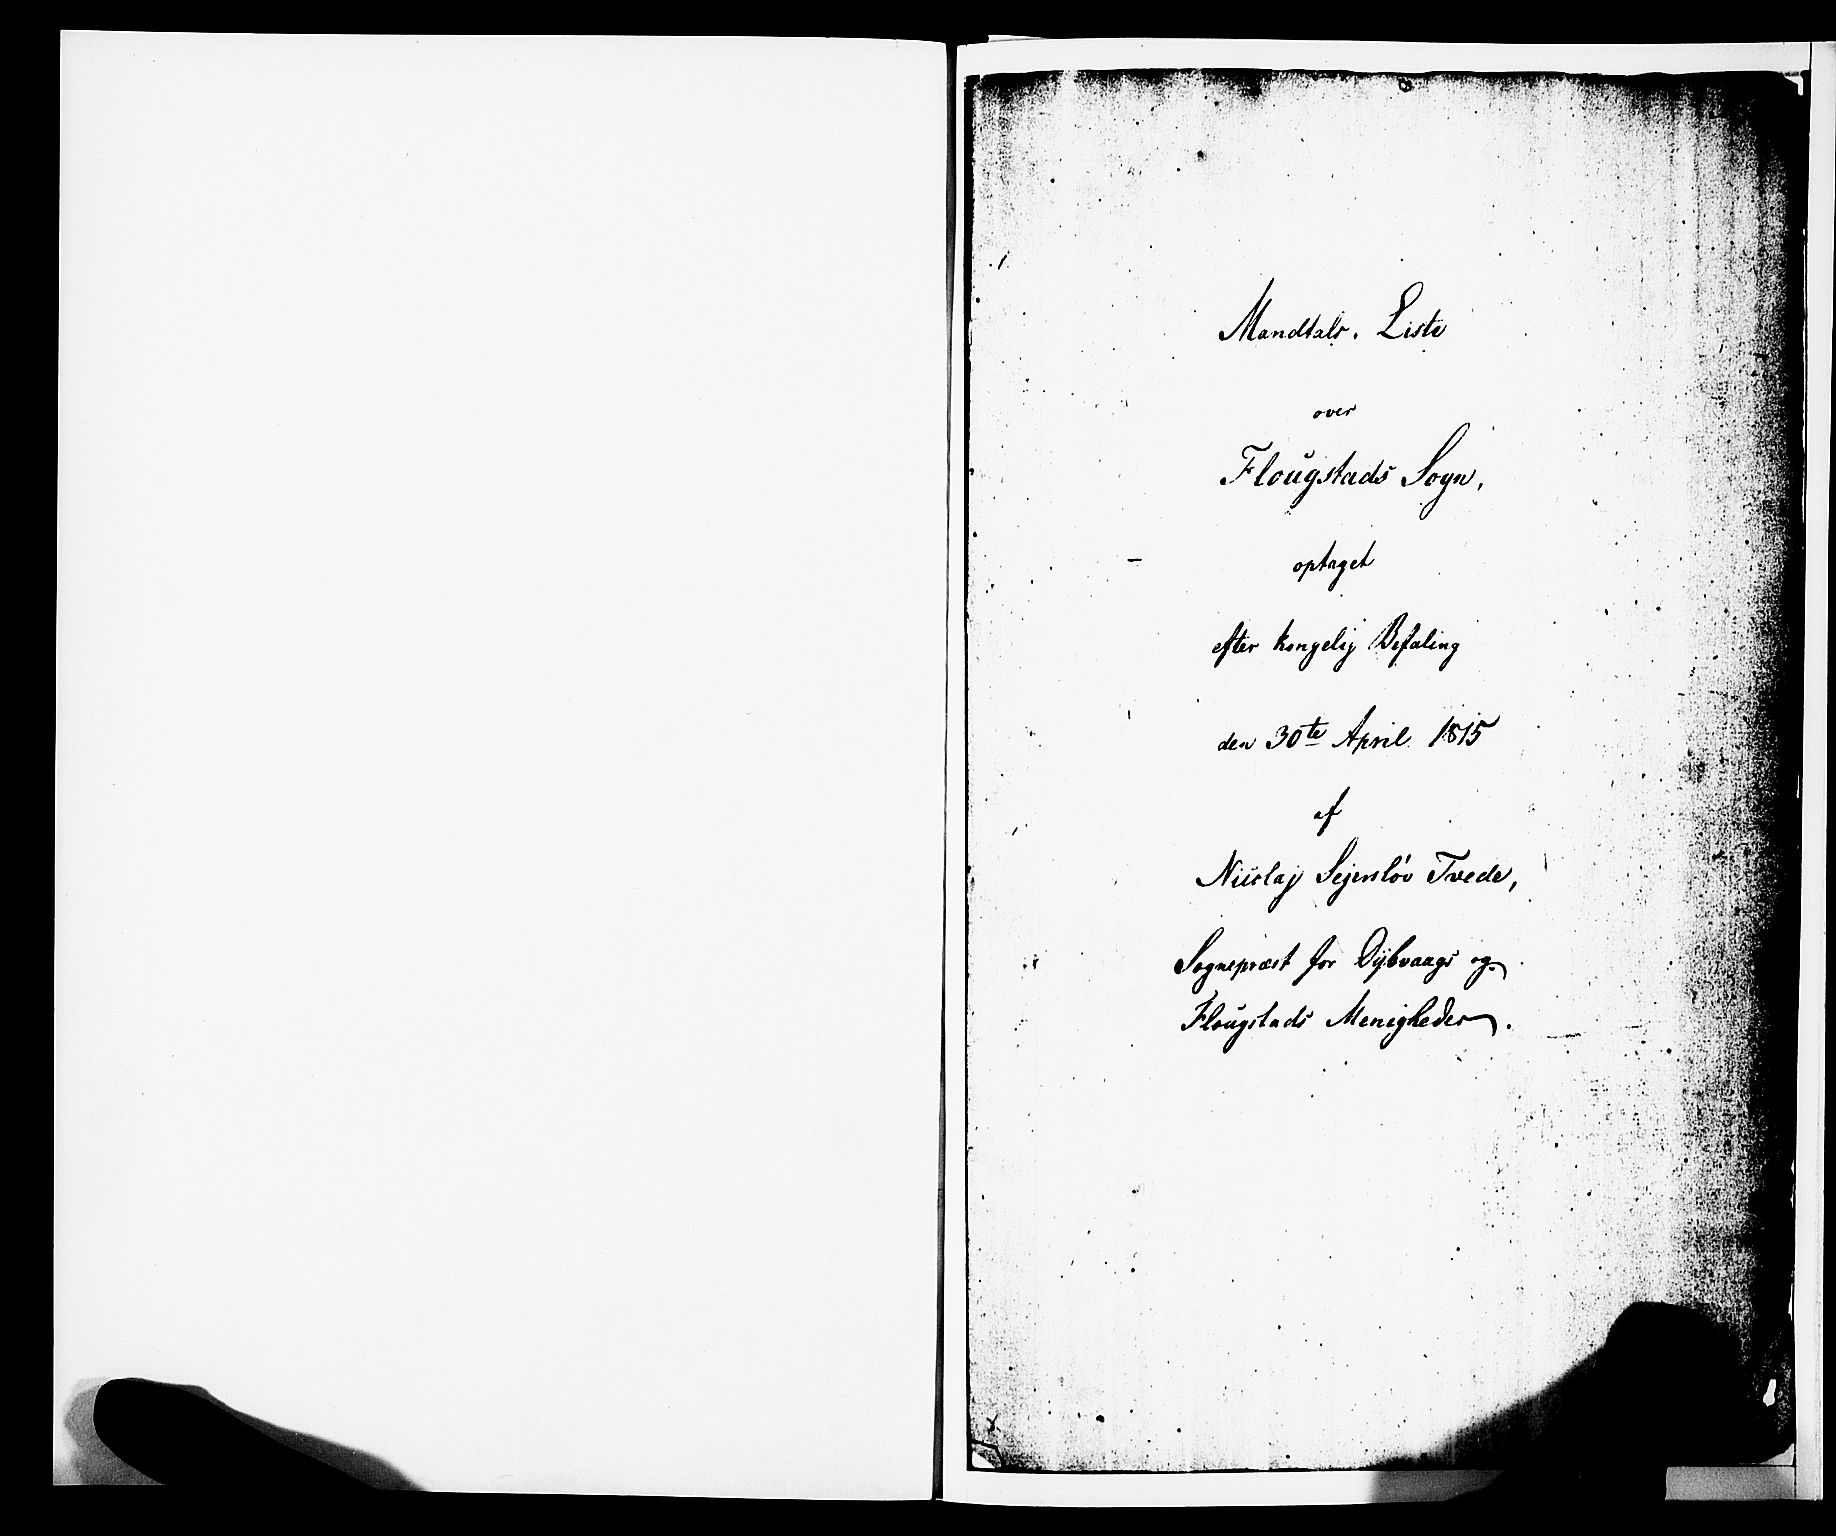 Mandtals. Liste
over
Flougstads Sogn,
optaget
efter kongelig Befaling
den 30te April 1815
af
Nicolaj Sejenløv Tvede,
Sognepræst for Dybvaags og
Flougstads Menigheder.